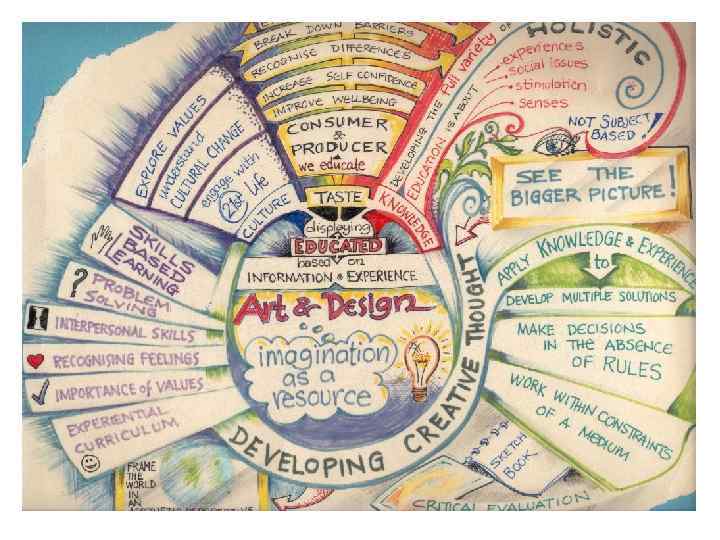 BREAK DOWN BARRIERS
RECOGNISE DIFFERENCES
INCREASE SELF CONFIDENCE
IMPROVE WELLBEING
CONSUMER
&
PRODUCER
we educate
TASTE
displaying
EDUCATED
based on
INFORMATION & EXPERIENCE
Art & Design
imagination
as a
resource
DEVELOPING CREATIVE THOUGHT
EXPLORE VALUES
understand
CULTURAL CHANGE
engage with
21st Life
CULTURE
KNOWLEDGE
EDUCATION IS ABOUT
DEVELOPING THE Full variety OF
HOLISTIC
experiences
social issues
stimulation
senses
NOT SUBJECT
BASED!
SEE THE
BIGGER PICTURE!
APPLY KNOWLEDGE & EXPERIENCE
to
DEVELOP MULTIPLE SOLUTIONS
MAKE DECISIONS
IN THE ABSENCE
OF RULES
WORK WITHIN CONSTRAINTS
OF A MEDIUM
SKETCH
BOOK
CRITICAL EVALUATION
SKILLS
BASED
LEARNING
? PROBLEM
SOLVING
INTERPERSONAL SKILLS
RECOGNISING FEELINGS
IMPORTANCE of VALUES
EXPERIENTIAL
CURRICULUM
FRAME
THE
WORLD
IN
AN